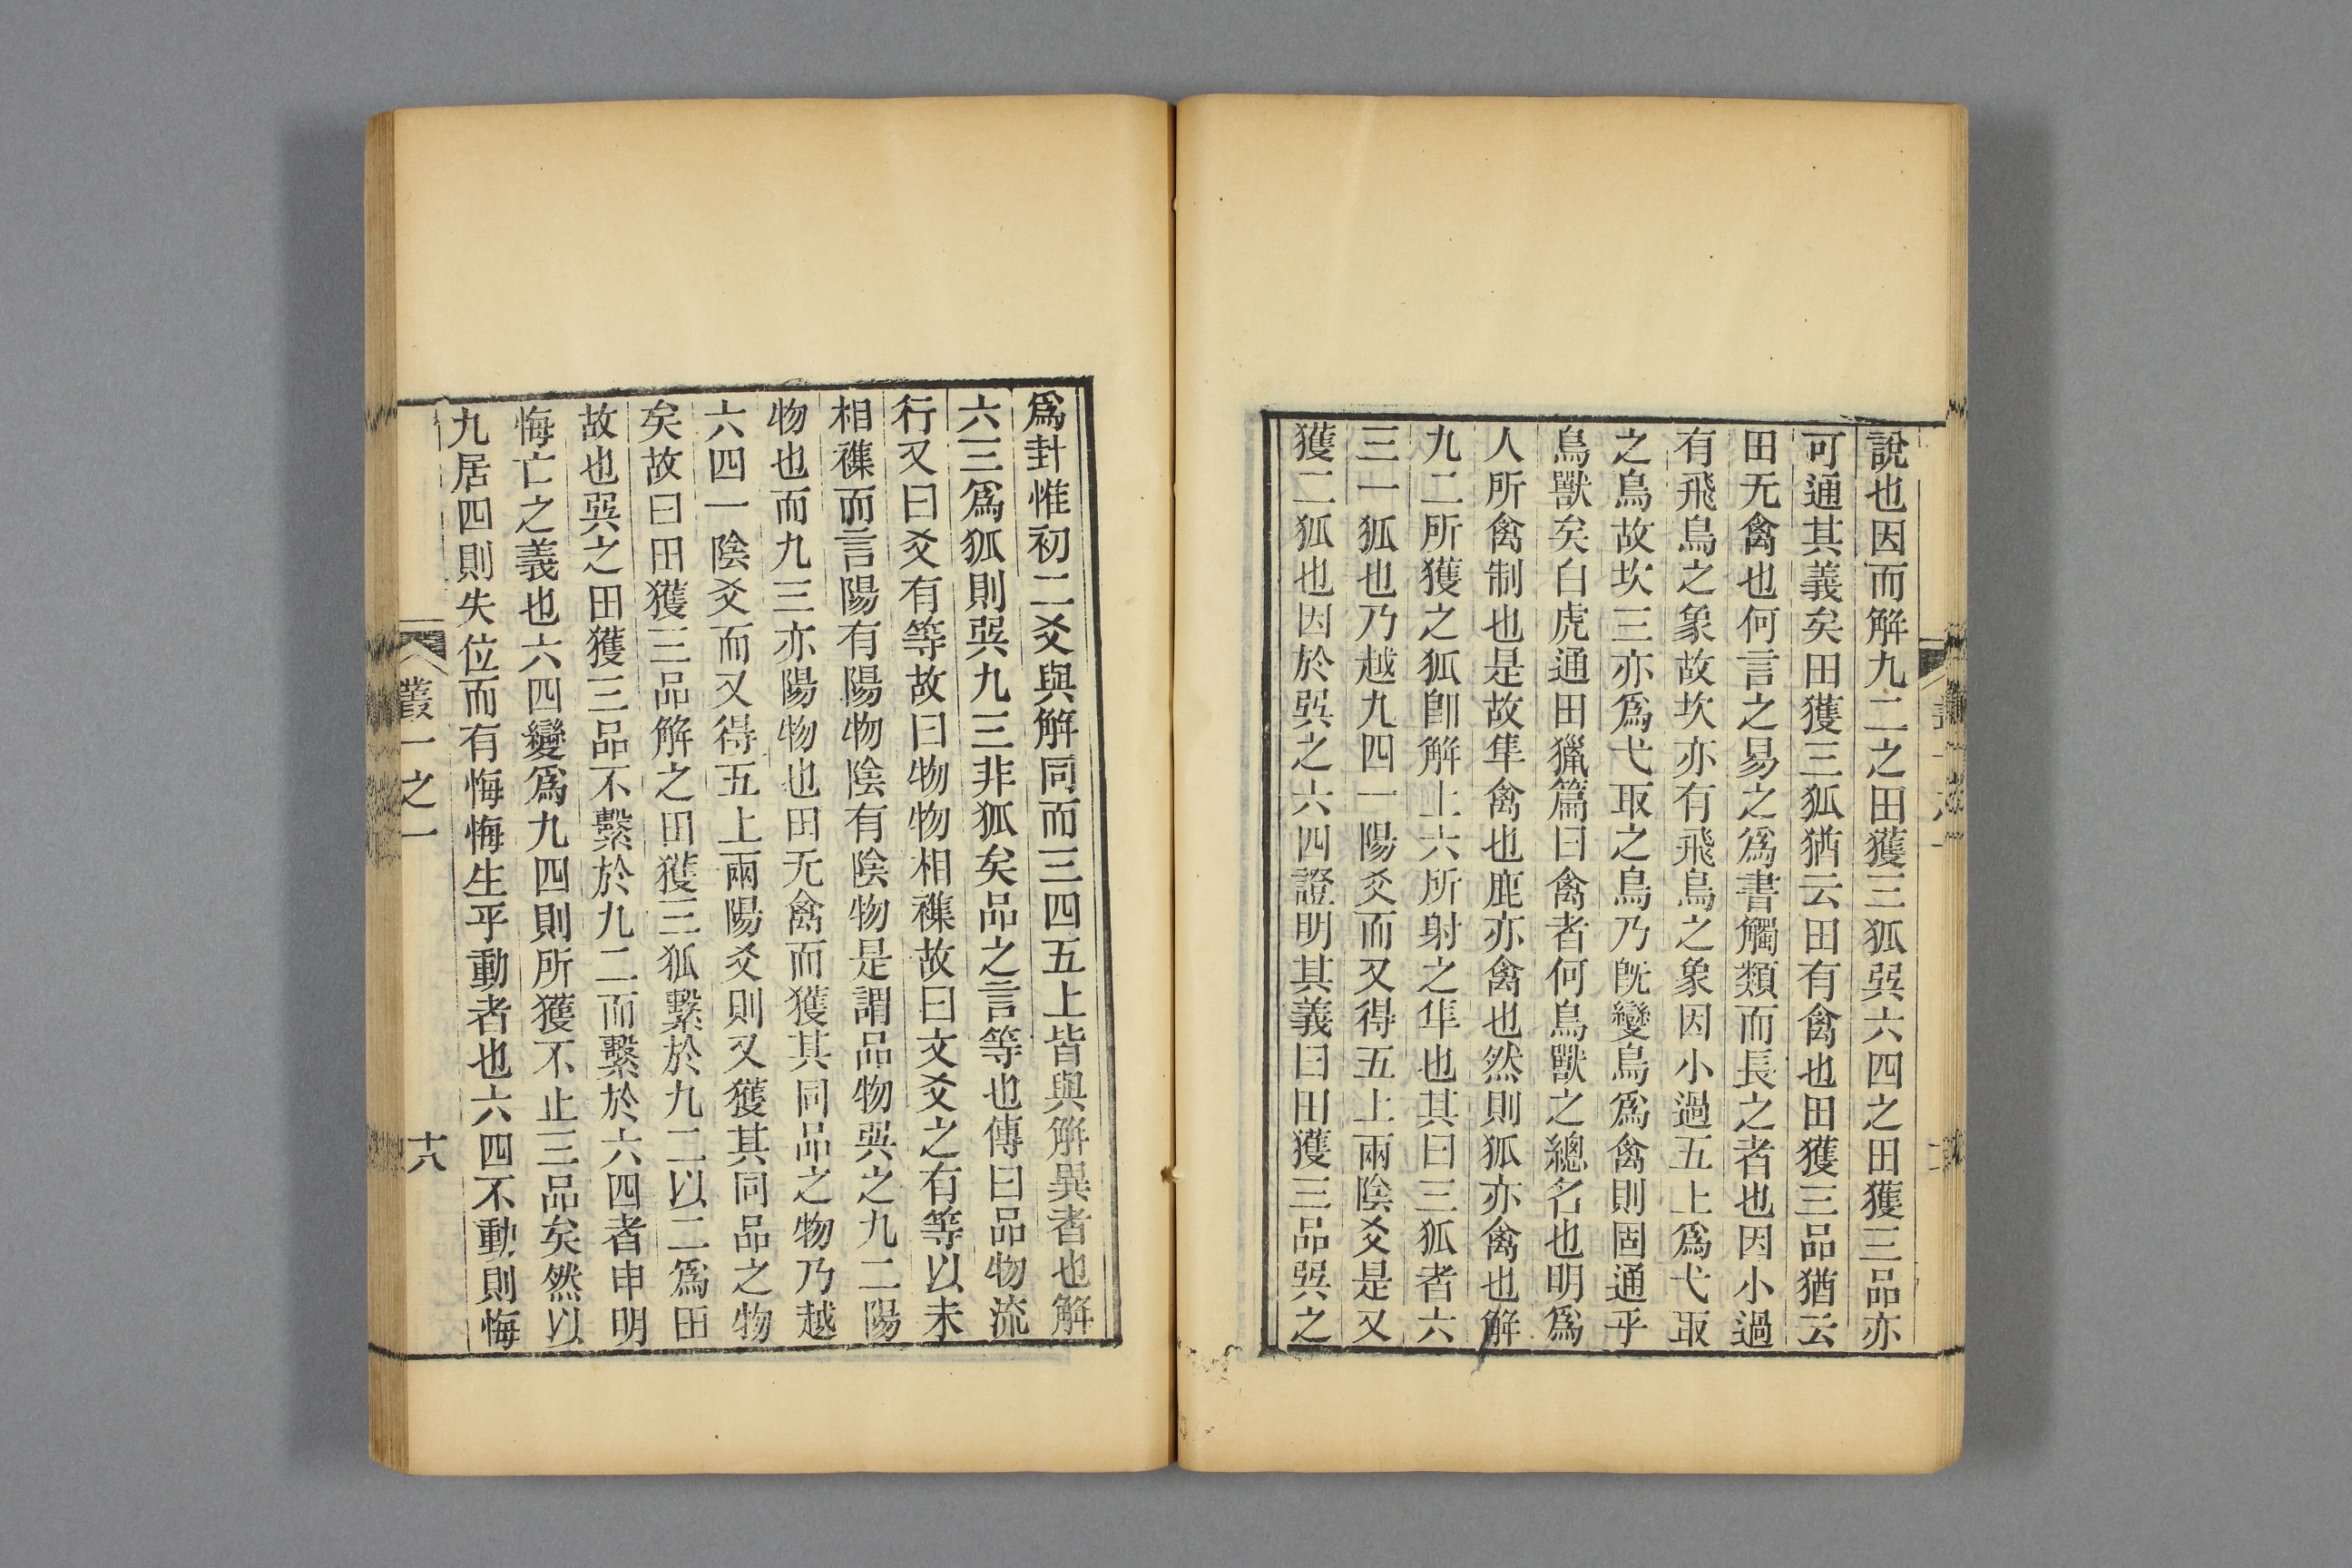 說也因而解九二之田獲三狐巽六四之田獲三品亦
可通其義矣田獲三狐猶云田有禽也田獲三品猶云
田无禽也何言之易之爲書觸類而長之者也因小過
有飛鳥之象故坎亦有飛鳥之象因小過五上爲弋取
之鳥故坎三亦爲弋取之鳥乃旣變鳥爲禽則固通乎
鳥獸矣白虎通田獵篇曰禽者何鳥獸之總名也明爲
人所禽制也是故隼禽也鹿亦禽也然則狐亦禽也解
九二所獲之狐卽解上六所射之隼也其曰三狐者六
三一狐也乃越九四一陽爻而又得五上兩陰爻是又
獲二狐也因於巽之六四證明其義曰田獲三品巽之
爲卦惟初二爻與解同而三四五上皆與解異者也解
六三爲狐則巽九三非狐矣品之言等也傳曰品物流
行又曰爻有等故曰物物相襍故曰文爻之有等以未
相襍而言陽有陽物陰有陰物是謂品物巽之九二陽
物也而九三亦陽物也田无禽而獲其同品之物乃越
六四一陰爻而又得五上兩陽爻則又獲其同品之物
矣故曰田獲三品解之田獲三狐繫於九二以二爲田
故也巽之田獲三品不繫於九二而繫於六四者申明
悔亡之義也六四變爲九四則所獲不止三品矣然以
九居四則失位而有悔悔生乎動者也六四不動則悔
叢一之一
十八